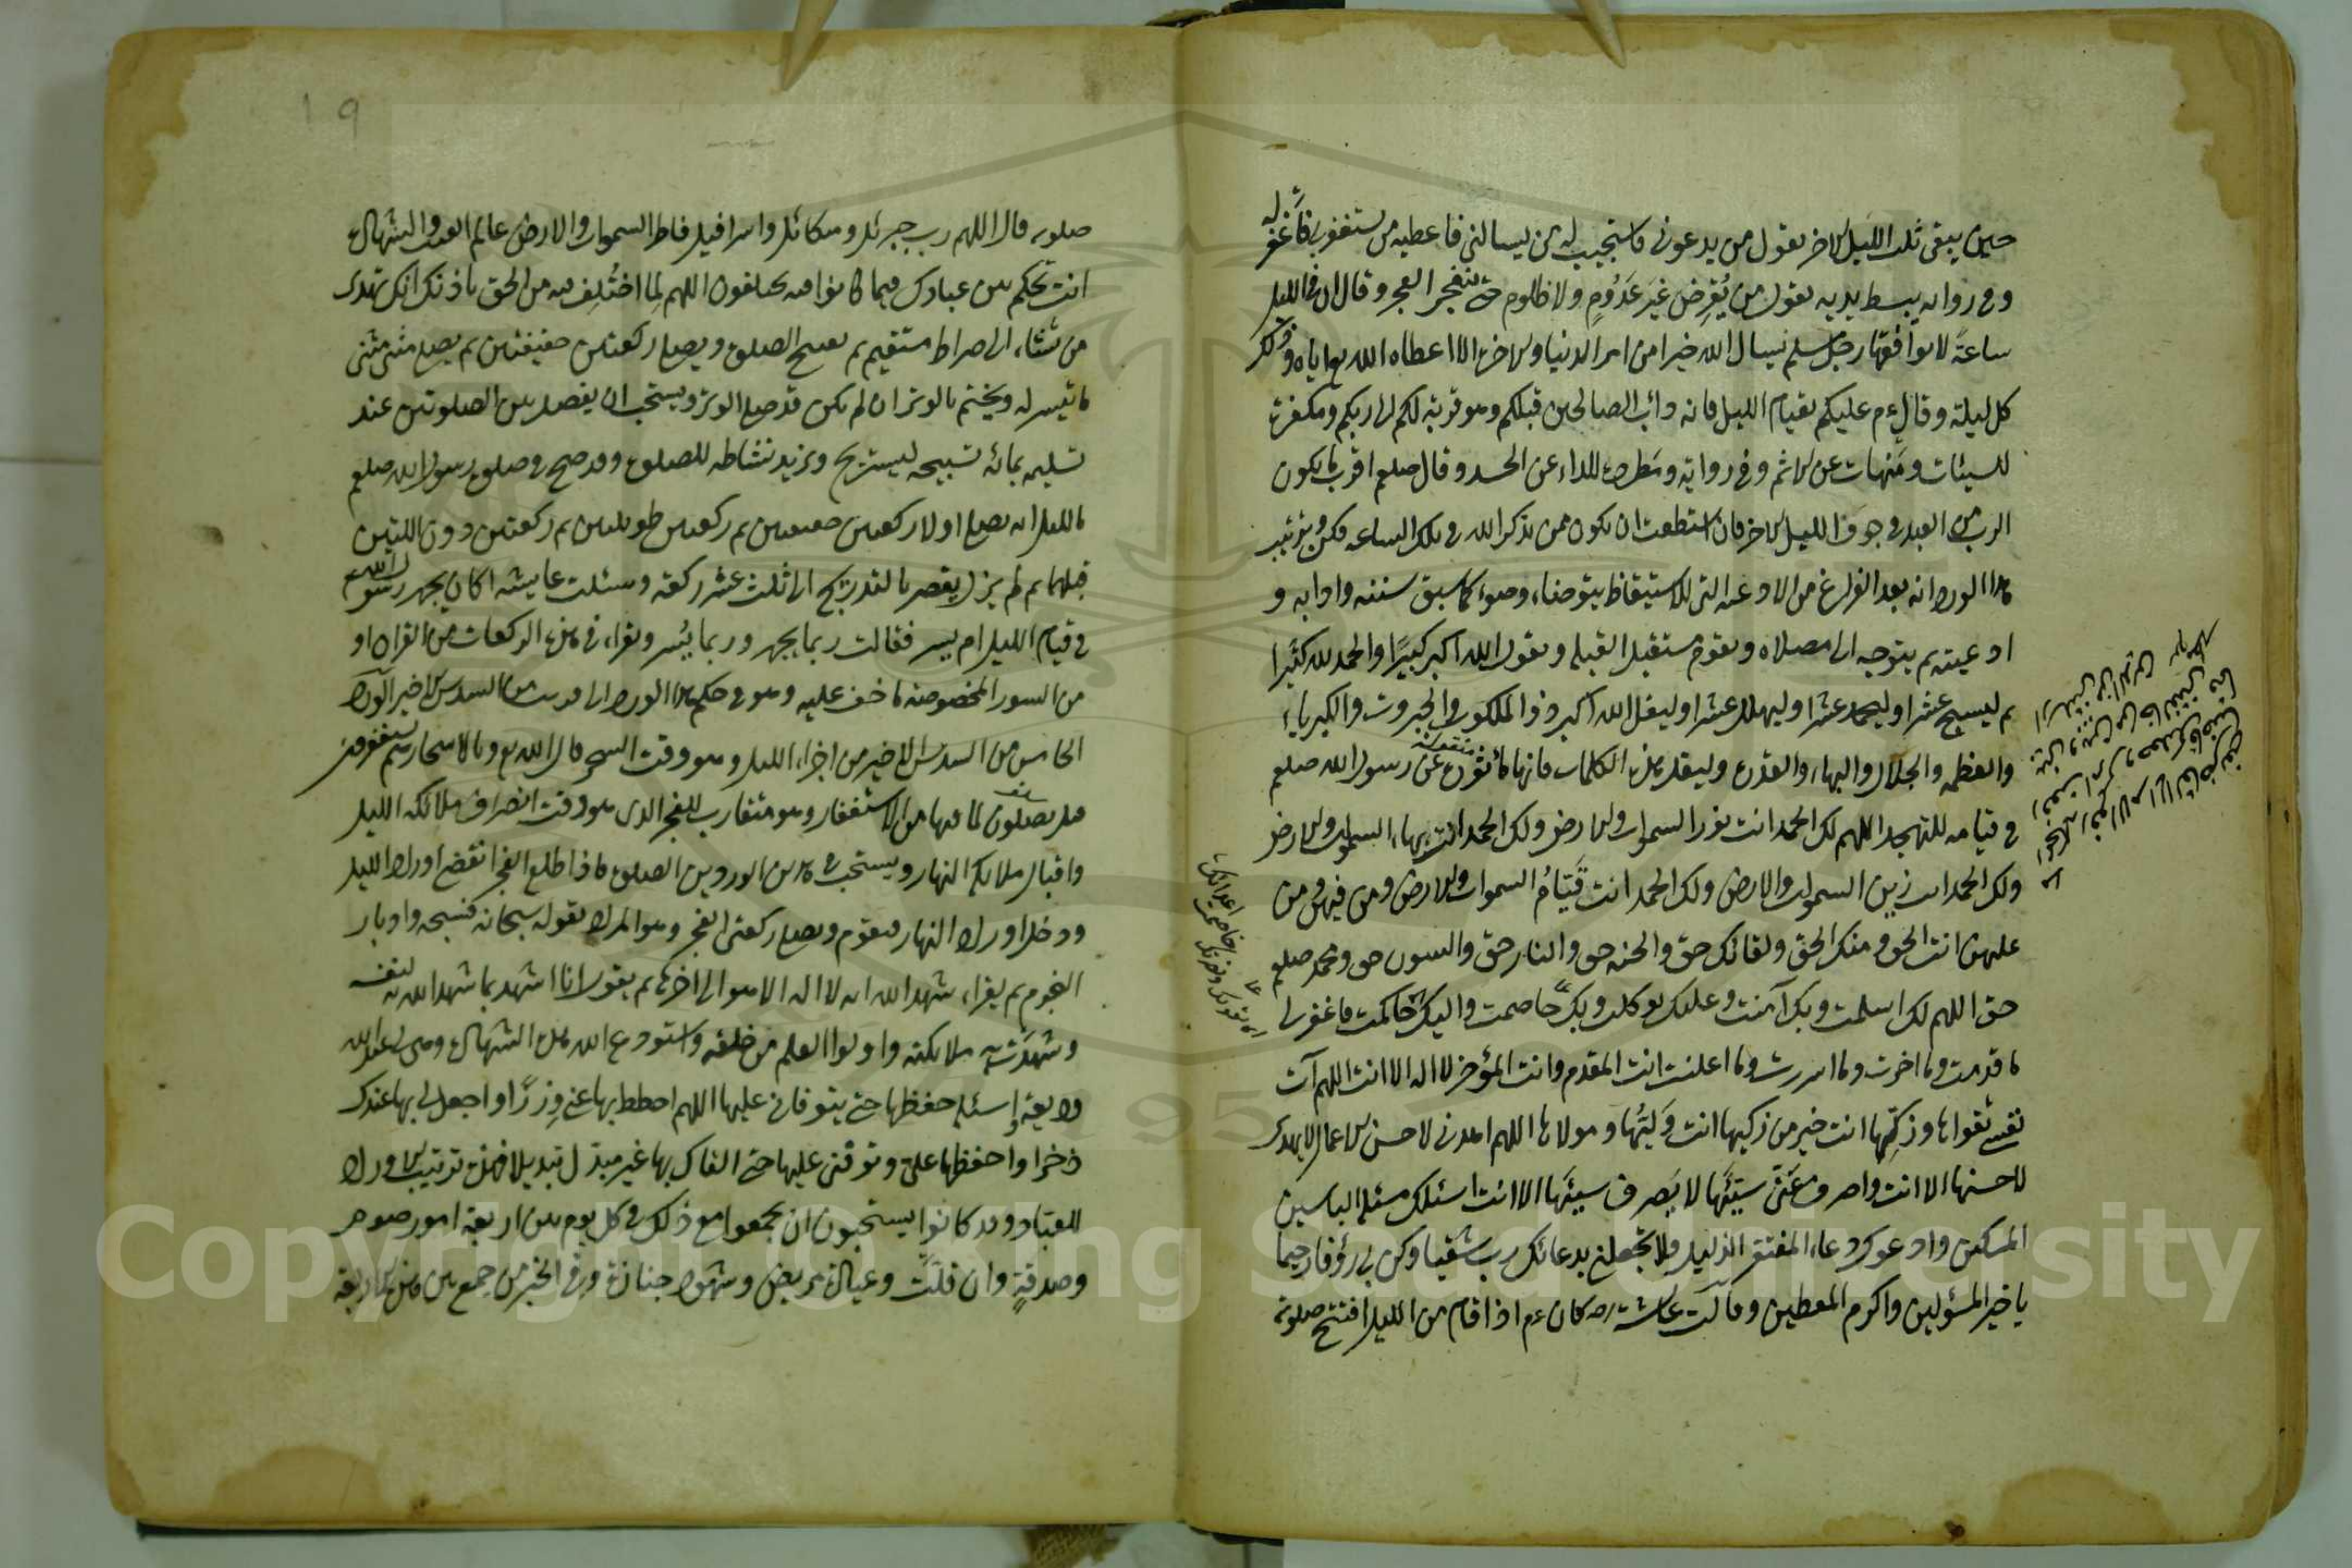 حين يبقى ثلث الليل الاخر يقول من يدعونى فاستجيب له من يسالنى فاعطيه من يستغفرنى فاغفر له
وفى رواية يبسط يديه يقول من يُقرِض غيرَ عَدُومٍ ولا ظلوم حتى ينفجر الفجر وقال ان فى الليل
ساعةً لا يوافقها رجل مسلم يسال الله خيرا من امر الدنيا والاخرة الا اعطاه الله تع اياه وذلك
كل ليلة وقال ع م عليكم بقيام الليل فانه دأب الصالحين قبلكم وهو قربة لكم الى ربكم ومكفرة
للسيئات ومَنهات عن الاثم وفى رواية ومَطردة للداء عن الجسد وقال صلعم اقرب ما يكون
الرب من العبد فى جوف الليل الاخر فان استطعت ان تكون ممن يذكر الله فى تلك الساعه فكن وترتيب
هذا الورد انه بعد الفراغ من الادعيه التى للاستيقاظ يتوضاء وضوءا كما سبق سننه وادابه و
ادعيته ثم يتوجه الى مصلاه ويقوم مستقبل القبلة ويقول الله اكبر كبيرًا والحمد لله كثيرا
ثم ليسبح عشرا وليحمد عشرا وليهلل عشرا وليقل الله اكبر ذو الملكوت والجبروت والكبرياء
والعظمه والجلال والبهاء والقدرة وليقل هذه الكلمات فانها ماثورة عن رسول الله صلعم
فى قيامه للتهجد اللهم لك الحمد انت نور السموات والارض ولك الحمد انت بهاء السموات والارض
ولك الحمد انت زين السموات والارض ولك الحمد انت قَيّامُ السموات والارض ومن فيهن ومن
عليهن انت الحق ومنك الحق ولقائك حق والجنه حق والنار حق والنبيون حق ومحمد صلعم
حق اللهم لك اسلمت وبك آمنت وعليك توكلت وبك خاصمت واليك حاكمت فاغفر لى
ما قدمت وما اخرت وما اسررت وما اعلنت انت المقدم وانت المؤخر لا اله الا انت اللهم آت
نفسى تقواها وزكّها انت خير من زكيها انت وَليّها ومولاها اللهم اهدنى لاحسن الاعمال لا يهدى
لاحسنها الا انت واصرف عنّى سيّئها لا يَصرف سيئها الا انت اسئلك مسئلة البائس
المسكين وادعوك دعاء المفتقر الذليل فلا تجعلنى بدعائك رب شقيا وكن بى رؤفا رحيما
يا خير المسئولين واكرم المعطين وقالت عائشة رضه كان ع م اذا قام من الليل افتتح صلوته
صلوته قال اللهم رب جبرئل وميكائل واسرافيل فاطر السموات والارض عالم الغيب والشهادة
انت تحكم بين عبادك فيما كانوا فيه يختلفون اللهم لِما اختُلِف فيه من الحق باذنك انك تهدى
من تشاء الى صراط مستقيم ثم يفتتح الصلوة ويصلى ركعتين خفيفتين ثم يصلى مثنى مثنى
ما تيسر له ويختم بالوتر ان لم يكن قد صلى الوتر ويستحب ان يفصل بين الصلوتين عند
تسليمه بمائة تسبيحه ليستريح ويزيد نشاطه للصلوة وقد صح فى صلوة رسول الله صلعم
بالليل انه يصلى اولا ركعتين خفيفتين ثم ركعتين طويلتين ثم ركعتين دون اللتين
قبلهما ثم لم يزل يقصر بالتدريج الى ثلث عشر ركعة وسئلت عايشه اكان يجهر رسول الله
فى قيام الليل ام يسر فقالت ربما يجهر وربما يُسر ويقراء فى هذه الركعات من القران او
من السور المخصوصة ما خف عليه وهو فى حكم هذا الورد الى قريب من السدس الاخير الورد
الخامس من السدس الاخير من اجزاء الليل وهو وقت السحر قال الله تع وبالاسحار هم يستغفرون
قيل يصلون لما فيها من الاستغفار وهو متقارب للفجر الذى هو وقت انصراف ملائكة الليل
واقبال ملائكة النهار ويستحب فى هذين الوردين الصلوة فاذا طلع الفجر انقضى اوراد الليل
ودخل اوراد النهار فيقوم ويصلى ركعتى الفجر وهو المراد بقوله سبحانه فسبحه وادبار
النجوم ثم يقراء شهد الله انه لا اله الا هو الى اخرها ثم يقول انا اشهد بما شهد الله به لنفسه
وشهدَت به ملائكته واولوا العلم من خلقه واستودع الله هذه الشهادة وهى لى عند الله
وديعة واسئله حفظها حتى يتوفانى عليها اللهم احطط بها عنى وِزرًا واجعل لى بها عندك
ذخرا واحفظها علىّ وتوفنى عليها حتى القاك بها غير مبدّل تبديلا فهذه ترتيب الاوراد
للعباد وقد كانوا يستحبون ان يجمعوا مع ذلك فى كل يوم بين اربعة امور صوم
وصدقةٍ وان قلّت وعيادة مريض وشهود جنازة وفى الخبر من جمع بين هذه الاربعة